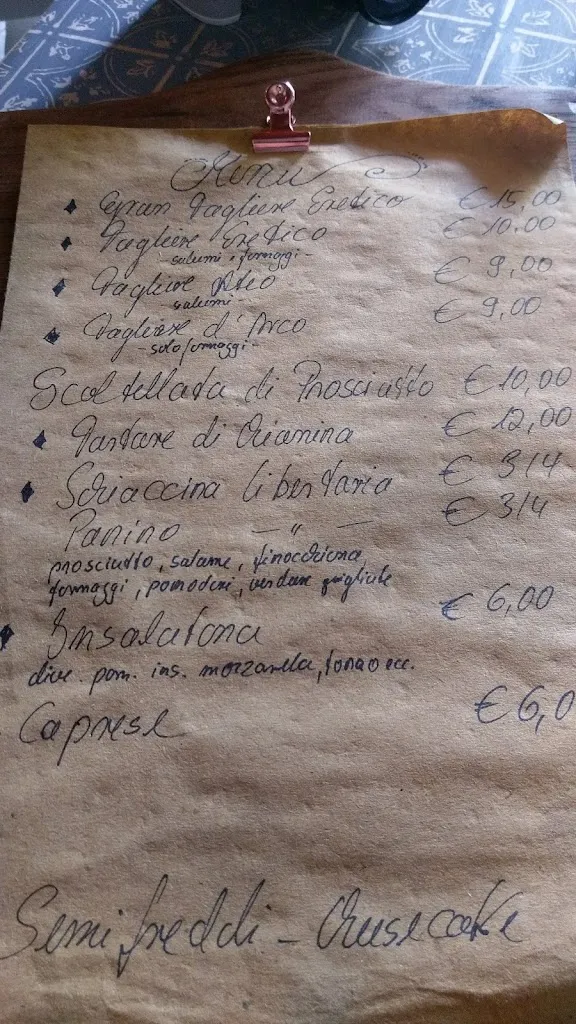 Menu
Gran Tagliere Eretico € 15,00
Tagliere Eretico € 10,00
salumi e formaggi -
Tagliere Ateo € 9,00
salumi -
Tagliere d'Arco € 9,00
- solo formaggi -
Scoltellata di Prosciutto € 10,00
Tartare di Chianina € 12,00
Schiaccina libertaria € 3/4
Panino — " — € 3/4
prosciutto, salame, finocchiona
formaggi, pomodori, verdure grigliate
Insalatona € 6,00
olive pom. ins. mozzarella, tonno ecc.
Caprese € 6,0
Semifreddi - Cheesecake